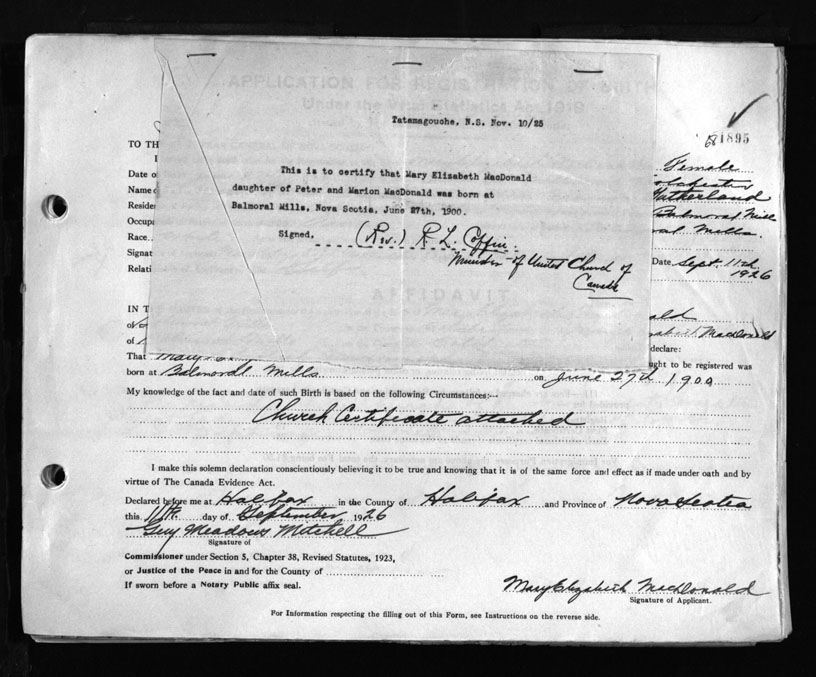 APPLICATION FOR REGISTRATION OF BIRTH
Under the Vital Statistics Act 1919
Tatamagouche, N.S. Nov. 10/25
68 1895
This is to certify that Mary Elizabeth MacDonald
daughter of Peter and Marion MacDonald was born at
Balmoral Mills, Nova Scotia, June 27th, 1900.
Signed, (Rev.) R. L. Coffin.
Minister of United Church of
Canada
TO TH
Date o
Name
Reside
Occup
Race
Signat
Relati
Female
Colchester
Sutherland
Balmoral Mills
ral Mills.
Date Sept. 11th
1926
AFFIDAVIT
IN T
ald
of
abeth MacDonald
declare:
That Mary ught to be registered was
born at Balmoral Mills on June 27th 1900
My knowledge of the fact and date of such Birth is based on the following Circumstances:—
Church Certificate attached
I make this solemn declaration conscientiously believing it to be true and knowing that it is of the same force and effect as if made under oath and by
virtue of The Canada Evidence Act.
Declared before me at Halifax in the County of Halifax and Province of Nova Scotia
this 11th day of September 1926
Guy Meadows Mitchell
Signature of
Commissioner under Section 5, Chapter 38, Revised Statutes, 1923,
or Justice of the Peace in and for the County of
If sworn before a Notary Public affix seal.
Mary Elizabeth MacDonald
Signature of Applicant.
For Information respecting the filling out of this Form, see Instructions on the reverse side.